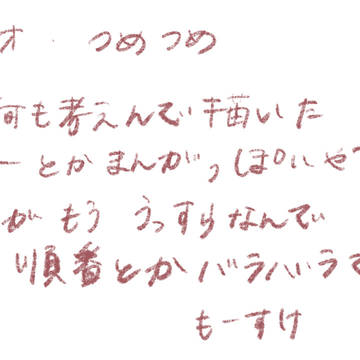 オ・つめつめ
何も考えんで描いた
ーとかまんがっぽいや
がもううっすらなんで
順番とかバラバラで
もーすけ